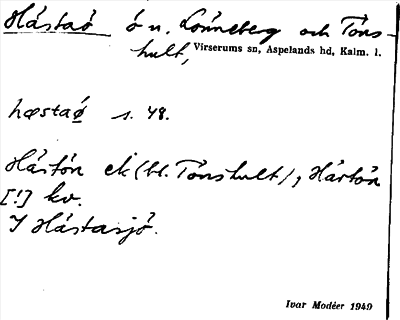 Hástaö ö n. Lönneberg och Töns-
hult, Virserums sn, Aspelands hd, Kalm. l.
hæstaǿ s. 48.
Hástön ek (bl. Tönshult), Hártön
[!] kv.
I Hástasjö.
Ivar Modéer 1949